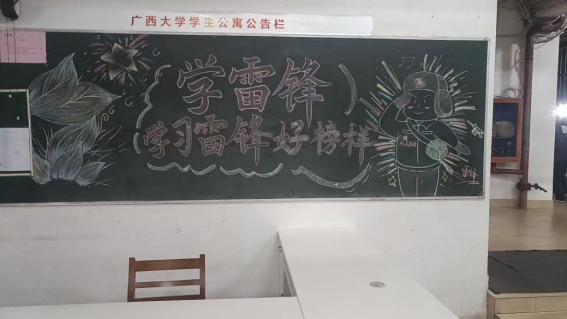 广西大学学生公寓公告栏
学雷锋
学习雷锋好榜样